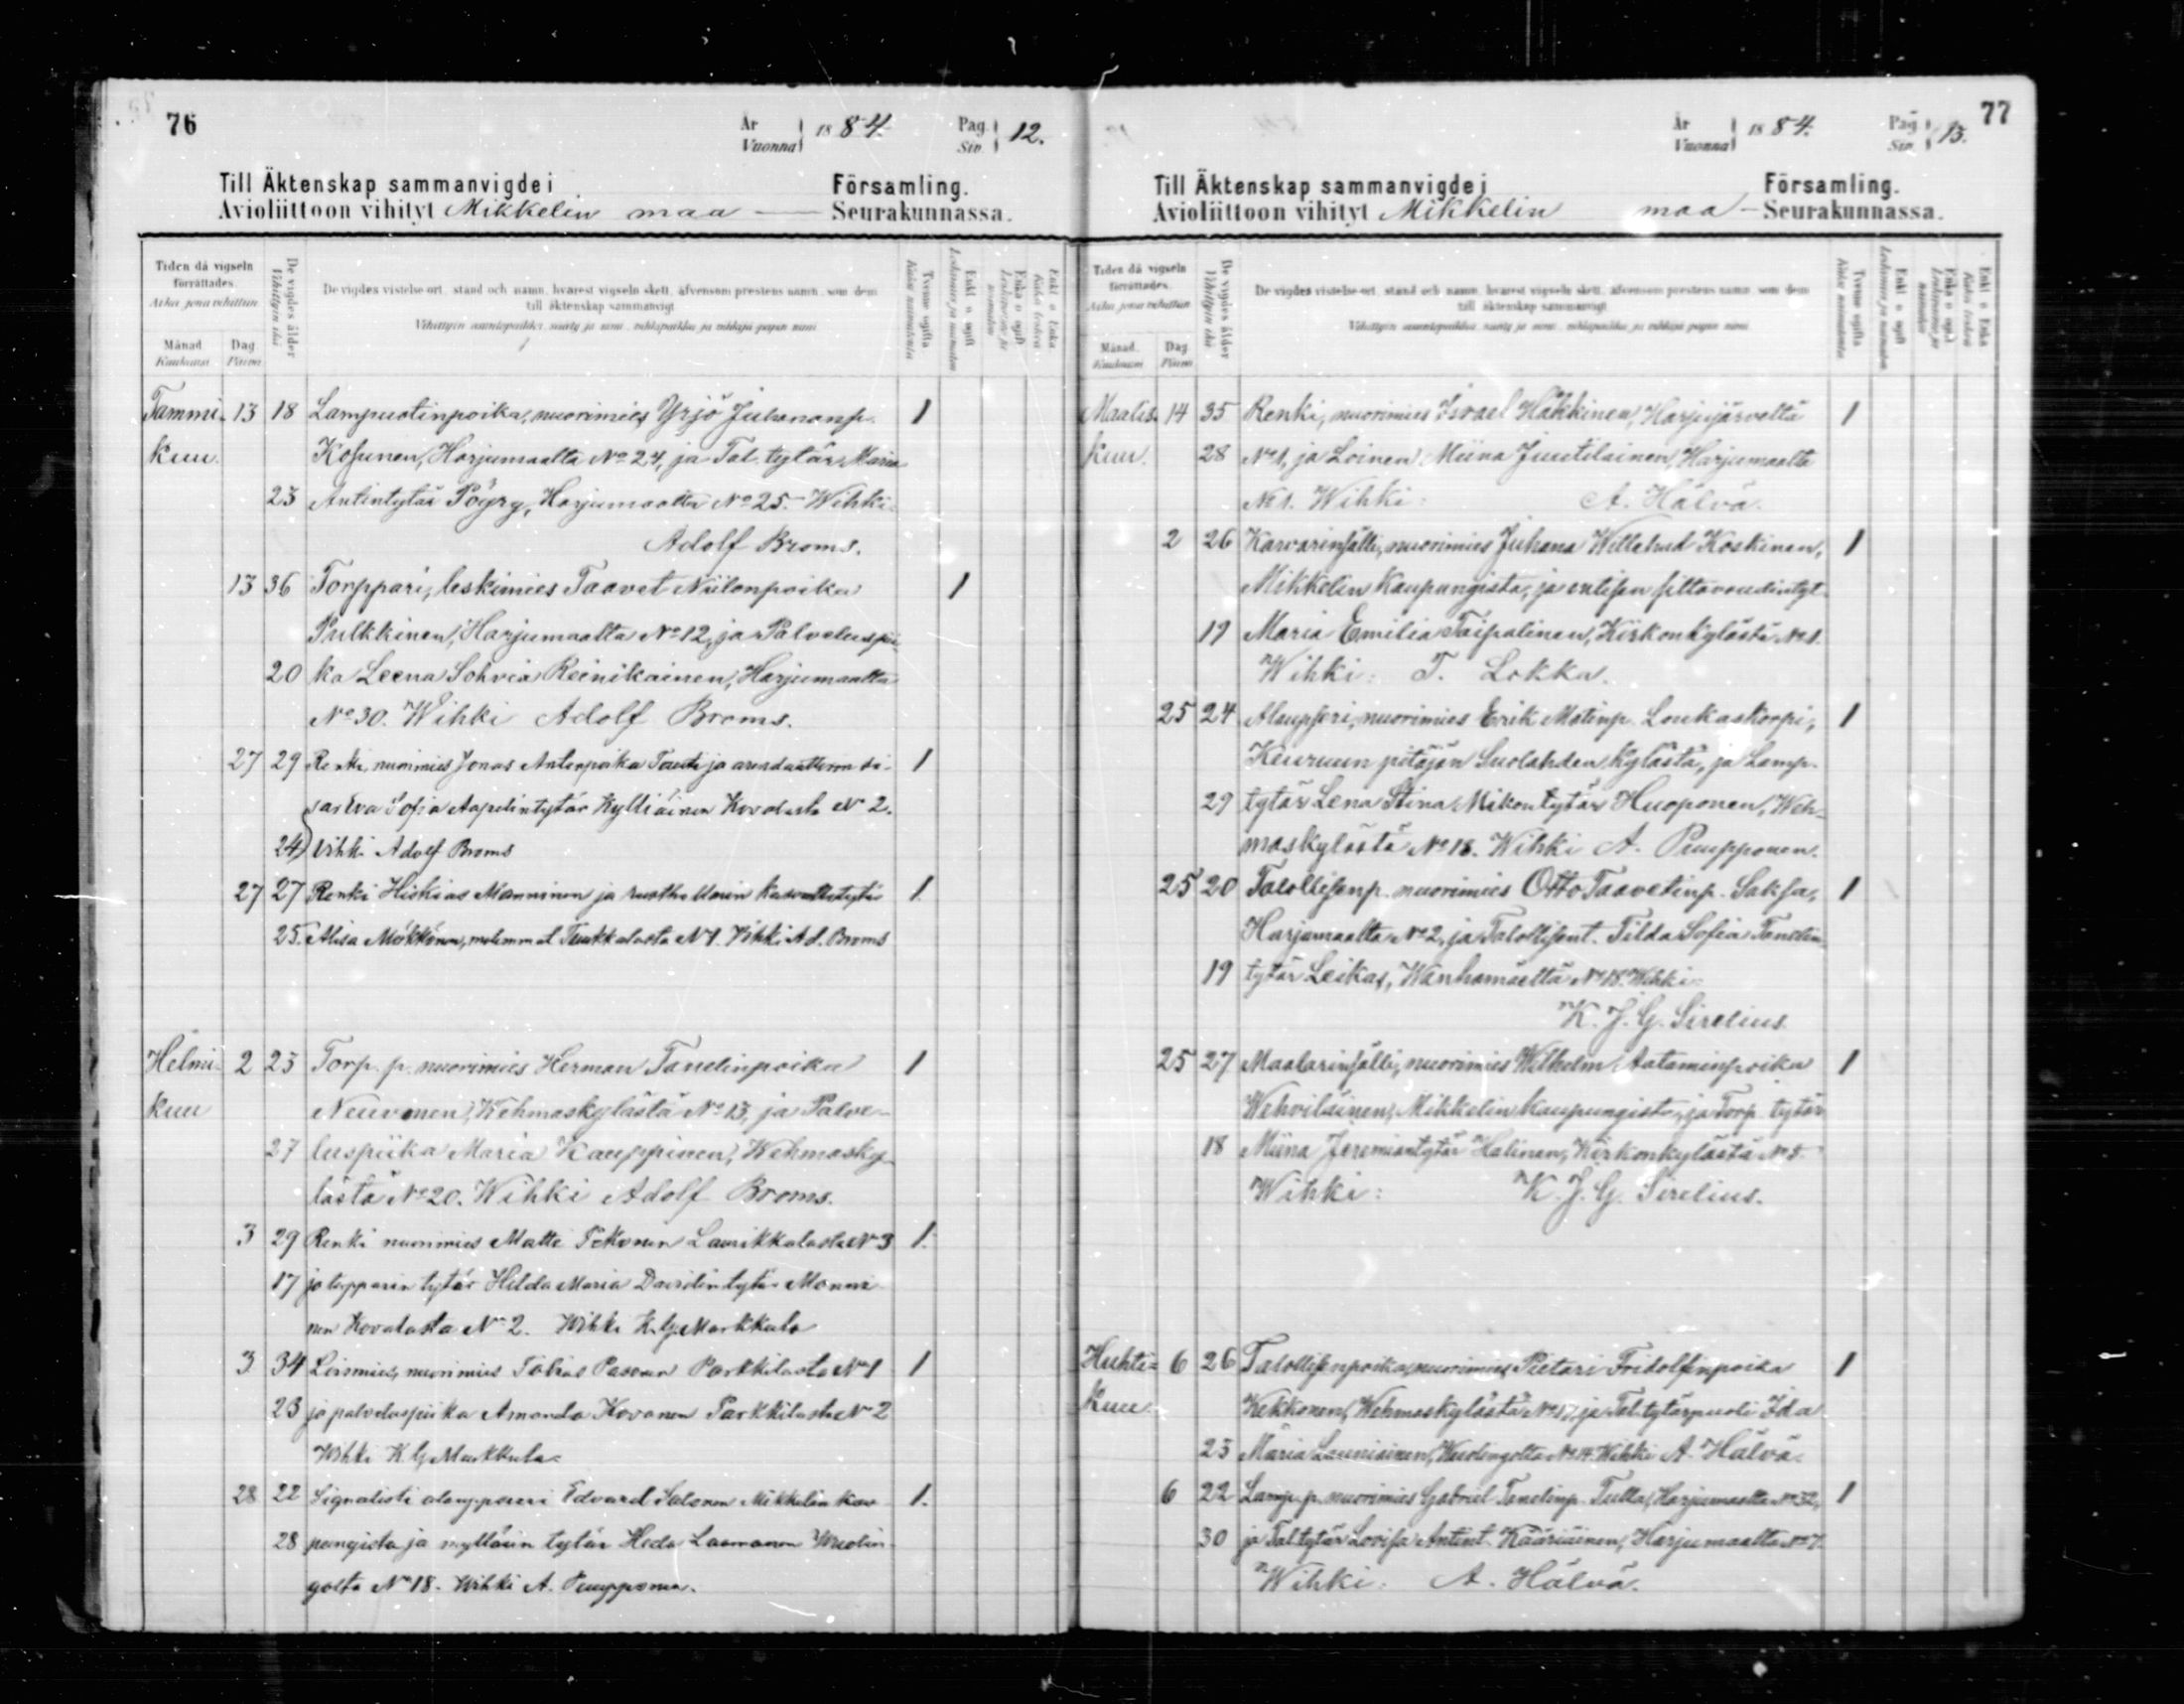 76
År
Vuonna 1884.
Pag.
Siv. 12.
Till Äktenskap sammanvigde i Församling.
Avioliittoon vihityt Mikkelin maa — Seurakunnassa.
Tiden då vigseln förrättades.
Aika jona vihittiin
Månad.
Kuukausi
Dag.
Päivä
De vigdes ålder
Vihittyin ikä
De vigdes vistelse ort, stånd och namn, hvarest vigseln skett, äfvensom prestens namn, som dem
till äktenskap sammanvigt
Vihittyin asuntopaikka, sääty ja nimi, vihkipaikka ja vihkijä papin nimi
Tvenne ogifta
Enkl. o. ogift
Enka o. ogift
Enkl. o. Enka
Tammi- 13 18 Lampuotinpoika, nuorimies Yrjö Juhananp. 1
kuu. Kosunen, Harjumaalta No 24, ja Tal. tytär Maria
23 Antintytär Pöyry, Harjumaalta No 25. Wihki
Adolf Broms.
13 36 Torppari, leskimies Taavet Niilonpoika 1
Pulkkinen, Harjumaalta No 12, ja Palveluspii-
20 ka Leena Sohvia Reinikainen, Harjumaalta
No 30. Wihki Adolf Broms.
27 29 Renki, nuorimies Jonas Antinpoika Tauti ja arendaattorin si- 1
sar Eva Sofia Aapelintytär Kylliäinen Kovalasta No 2.
24 Vihki Adolf Broms
27 27 Renki Hiskias Manninen ja ruotholtarin kasvattitytär 1.
25. Alisa Möttönen, molemmat Tuukkalasta N 1. Vihki Ad. Broms
Helmi- 2 23 Torp. p. nuorimies Herman Tanelinpoika 1
kuu Neuvonen, Wehmaskylästä No 13, ja Palve-
27 luspiika Maria Kauppinen, Wehmasky-
lästä No 20. Wihki Adolf Broms.
3 29 Renki nuorimies Matti Tikonen Laurikkalasta No 3 1.
17 ja torpparin tytär Hilda Maria Davidin tytär Manni
nen Kovalasta No 2. Wihki K. G. Markkula
3 34 Loismies, nuorimies Tobias Pasonen Parkkilasta No 1 1
23 ja palveluspiika Amanda Kovanen Parkkilasta No 2
Wihki K. G. Markkula
28 22 Signalisti alaupseeri Edvard Salonen Mikkelin kau 1.
28 pungista ja myllärin tytär Heda Laamanen Wuolin
golta No 18. Wihki A. Puupponen.
77
År
Vuonna 1884.
Pag.
Siv. 13.
Till Äktenskap sammanvigde i Församling.
Avioliittoon vihityt Mikkelin maa — Seurakunnassa.
Tiden då vigseln förrättades.
Aika jona vihittiin
Månad.
Kuukausi
Dag.
Päivä
De vigdes ålder
Vihittyin ikä
De vigdes vistelse-ort, stånd och namn, hvarest vigseln skett, äfvensom prestens namn, som dem
till äktenskap sammanvigt
Vihittyin asuntopaikka, sääty ja nimi, vihkipaikka ja vihkijä papin nimi
Tvenne ogifta
Enkl. o. ogift
Enka o. ogift
Enkl. o. Enka
Maalis- 14 35 Renki, nuorimies Israel Häkkinen, Harjujärveltä 1
kuu. 28 No 1, ja Loinen Miina Juutilainen, Harjumaalta
No 1. Wihki: A. Hälvä.
2 26 Karvarinsälli, nuorimies Juhana Willehad Koskinen, 1
Mikkelin kaupungista, ja entisen siltavoudintyt.
19 Maria Emilia Taipalinen, Kirkonkylästä No 1.
Wihki: T. Lokka.
25 24 Alaupseri, nuorimies Erik Matinp. Loukaskorpi, 1
Keuruun pitäjän Suolahden kylästä, ja Lamp.
29 tytär Lena Stina Mikontytär Huoponen, Weh-
maskylästä No 18. Wihki A. Puupponen.
25 20 Talollisenp. nuorimies Otto Taavetinp. Saksa, 1
Harjumaalta No 2, ja Talollisent. Tilda Sofia Tanelin
19 tytär Leikas, Wanhamäeltä No 18. Wihki
K. J. G. Sirelius.
25 27 Maalarinsälli, nuorimies Wilhelm Aataminpoika 1
Wehviläinen, Mikkelin kaupungista, ja Torp. tytär
18 Miina Jeremiantytär Halinen, Kirkonkylästä No 5
Wihki: K. J. G. Sirelius.
Huhti- 6 26 Talollisenpoika, nuorimies Pietari Fridolfinpoika 1
kuu. Kekkonen, Wehmaskylästä No 17, ja Tal. tytärpuoli Ida
25 Maria Launiainen, Wuolingolta No 14. Wihki A. Hälvä.
6 22 Lamp. p. nuorimies Gabriel Tanelinp. Tulla, Harjumaalta No 32, 1
30 ja Tal. tytär Lovisa Antint. Kääriäinen, Harjumaalta No 7.
Wihki: A. Hälvä.